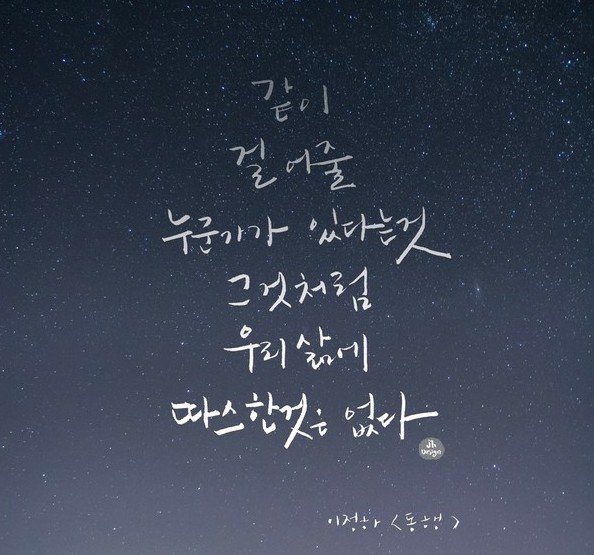 같이
걸어줄
누군가가 있다는것
그것처럼
우리 삶에
따스한것은 없다
jh
Design
이정하 <동행>